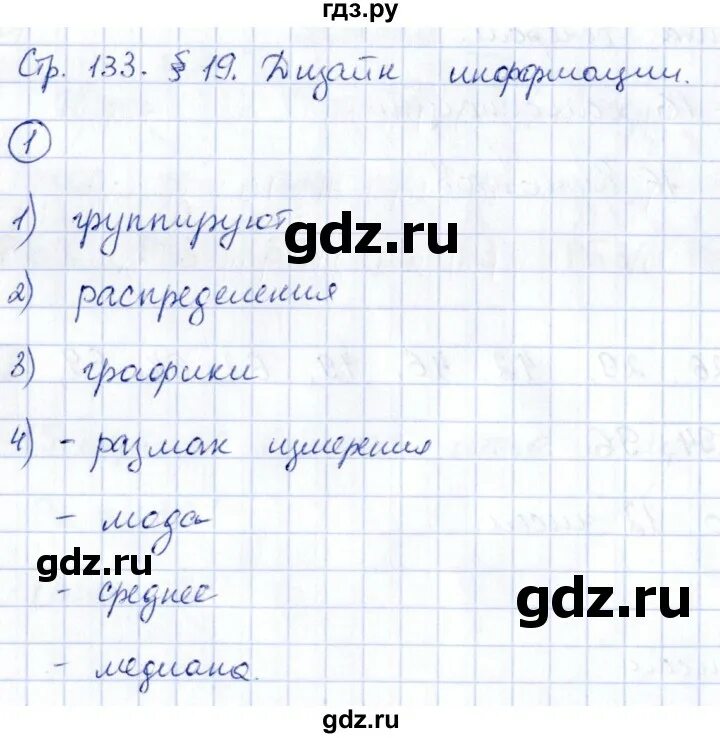 гдз.ру
Стр. 133. § 19. Дизайн информации.
1
1) группируют
gdz.ru
2) распределения
3) графики
4) - размах измерения
- мода
gdz.ru
- среднее
gdz.ru
- медиана.
gdz.ru